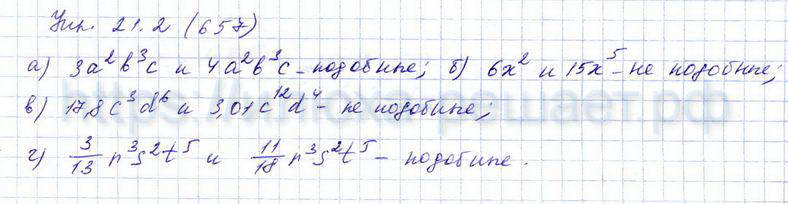 Упр. 21.2 (657)
а) 3a²b³c и 4a²b³c – подобные; б) 6x² и 15x⁵ – не подобные;
в) 17,8c³d⁶ и 3,01c¹²d⁴ – не подобные;
г) 3/13 n³s²t⁵ и 11/18 n³s²t⁵ – подобные.